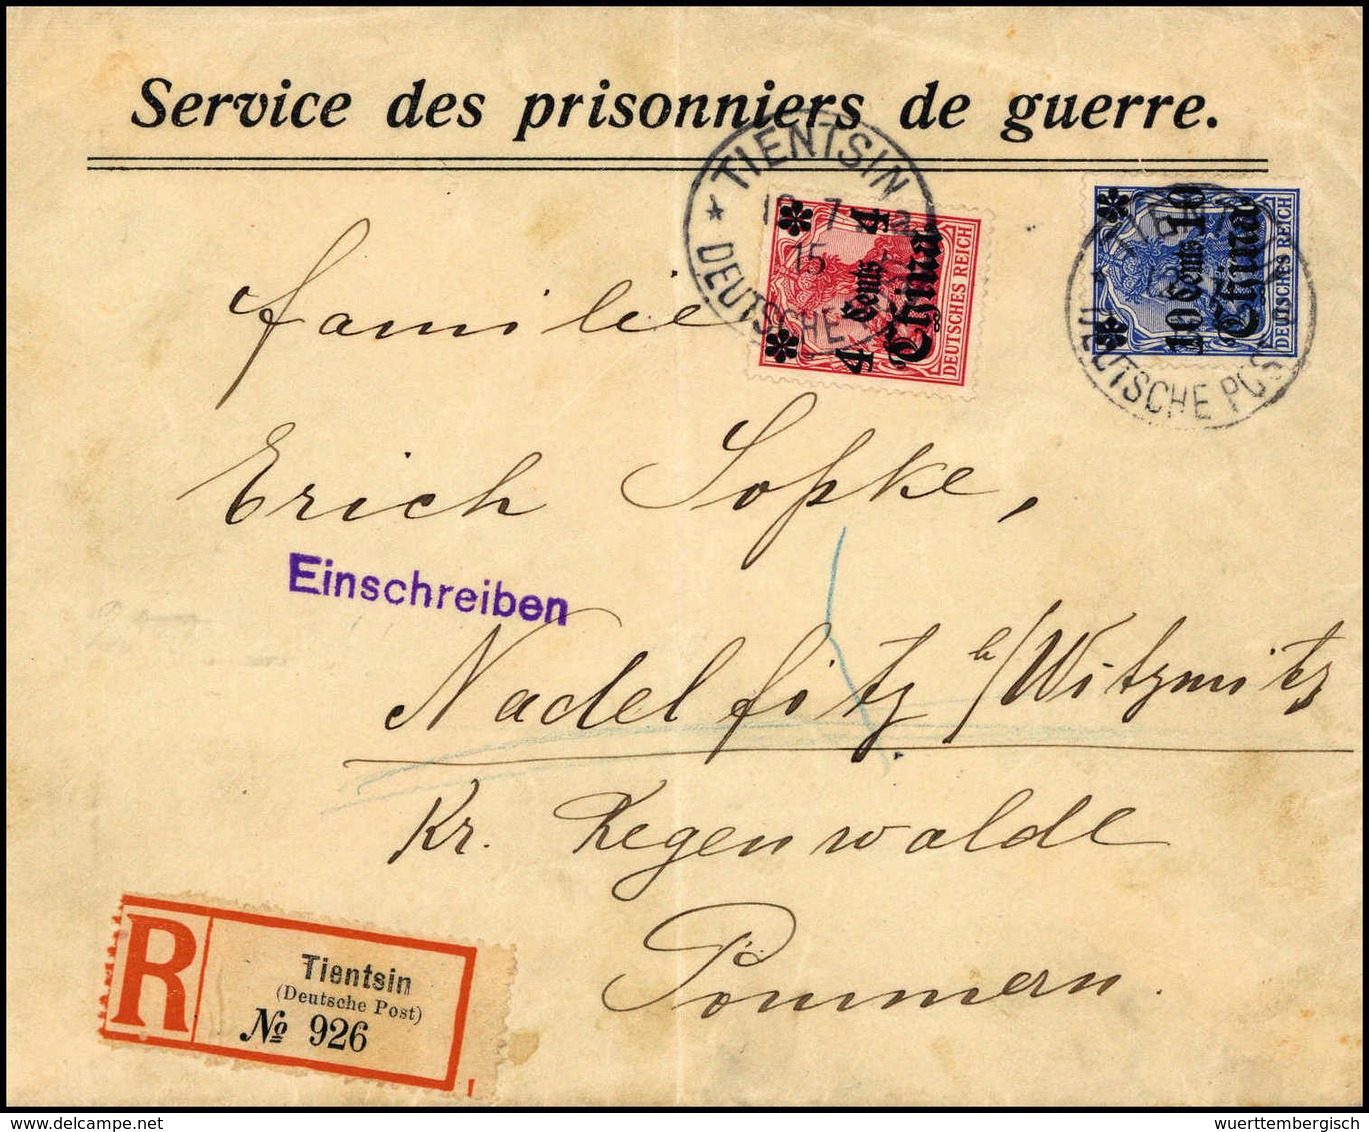 Service des prisonniers de guerre.
★ TIENTSIN
7
15
DEUTSCHE
4 Cents 4
China
DEUTSCHES REICH
10 Cents 10
China
DEUTSCHES REICH
DEUTSCHE POST
familie
Erich Sopke,
Einschreiben
Nadel fitz b/Witzmitz
Kr. Regenwalde
Pommern.
R
Tientsin
(Deutsche Post)
№ 926
wuerttembergisch